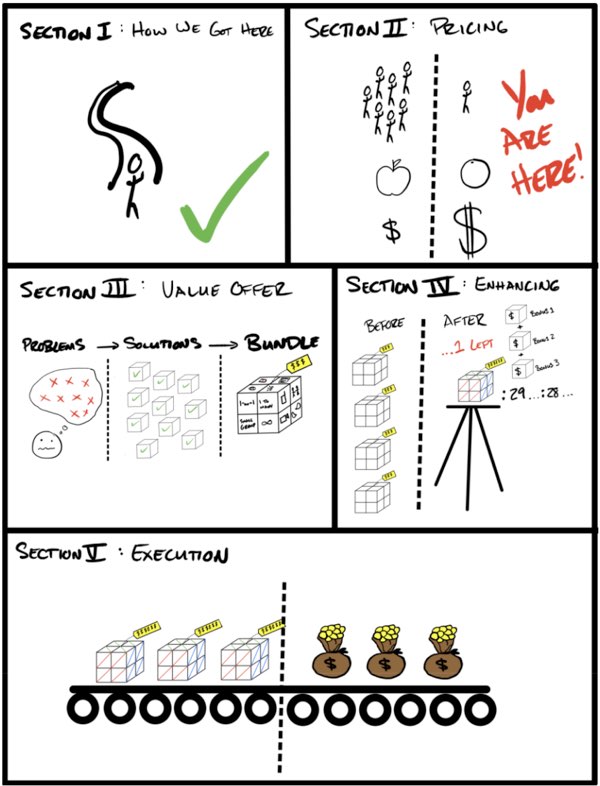 SECTION I : HOW WE GOT HERE
SECTION II : PRICING
$
$
YOU
ARE
HERE!
SECTION III : VALUE OFFER
PROBLEMS → SOLUTIONS → BUNDLE
$$$
SMALL
GROUP
SECTION IV : ENHANCING
BEFORE
AFTER
...1 LEFT
$ BONUS 1
+
$ BONUS 2
+
$ BONUS 3
:29...:28...
SECTION V : EXECUTION
$ $ $